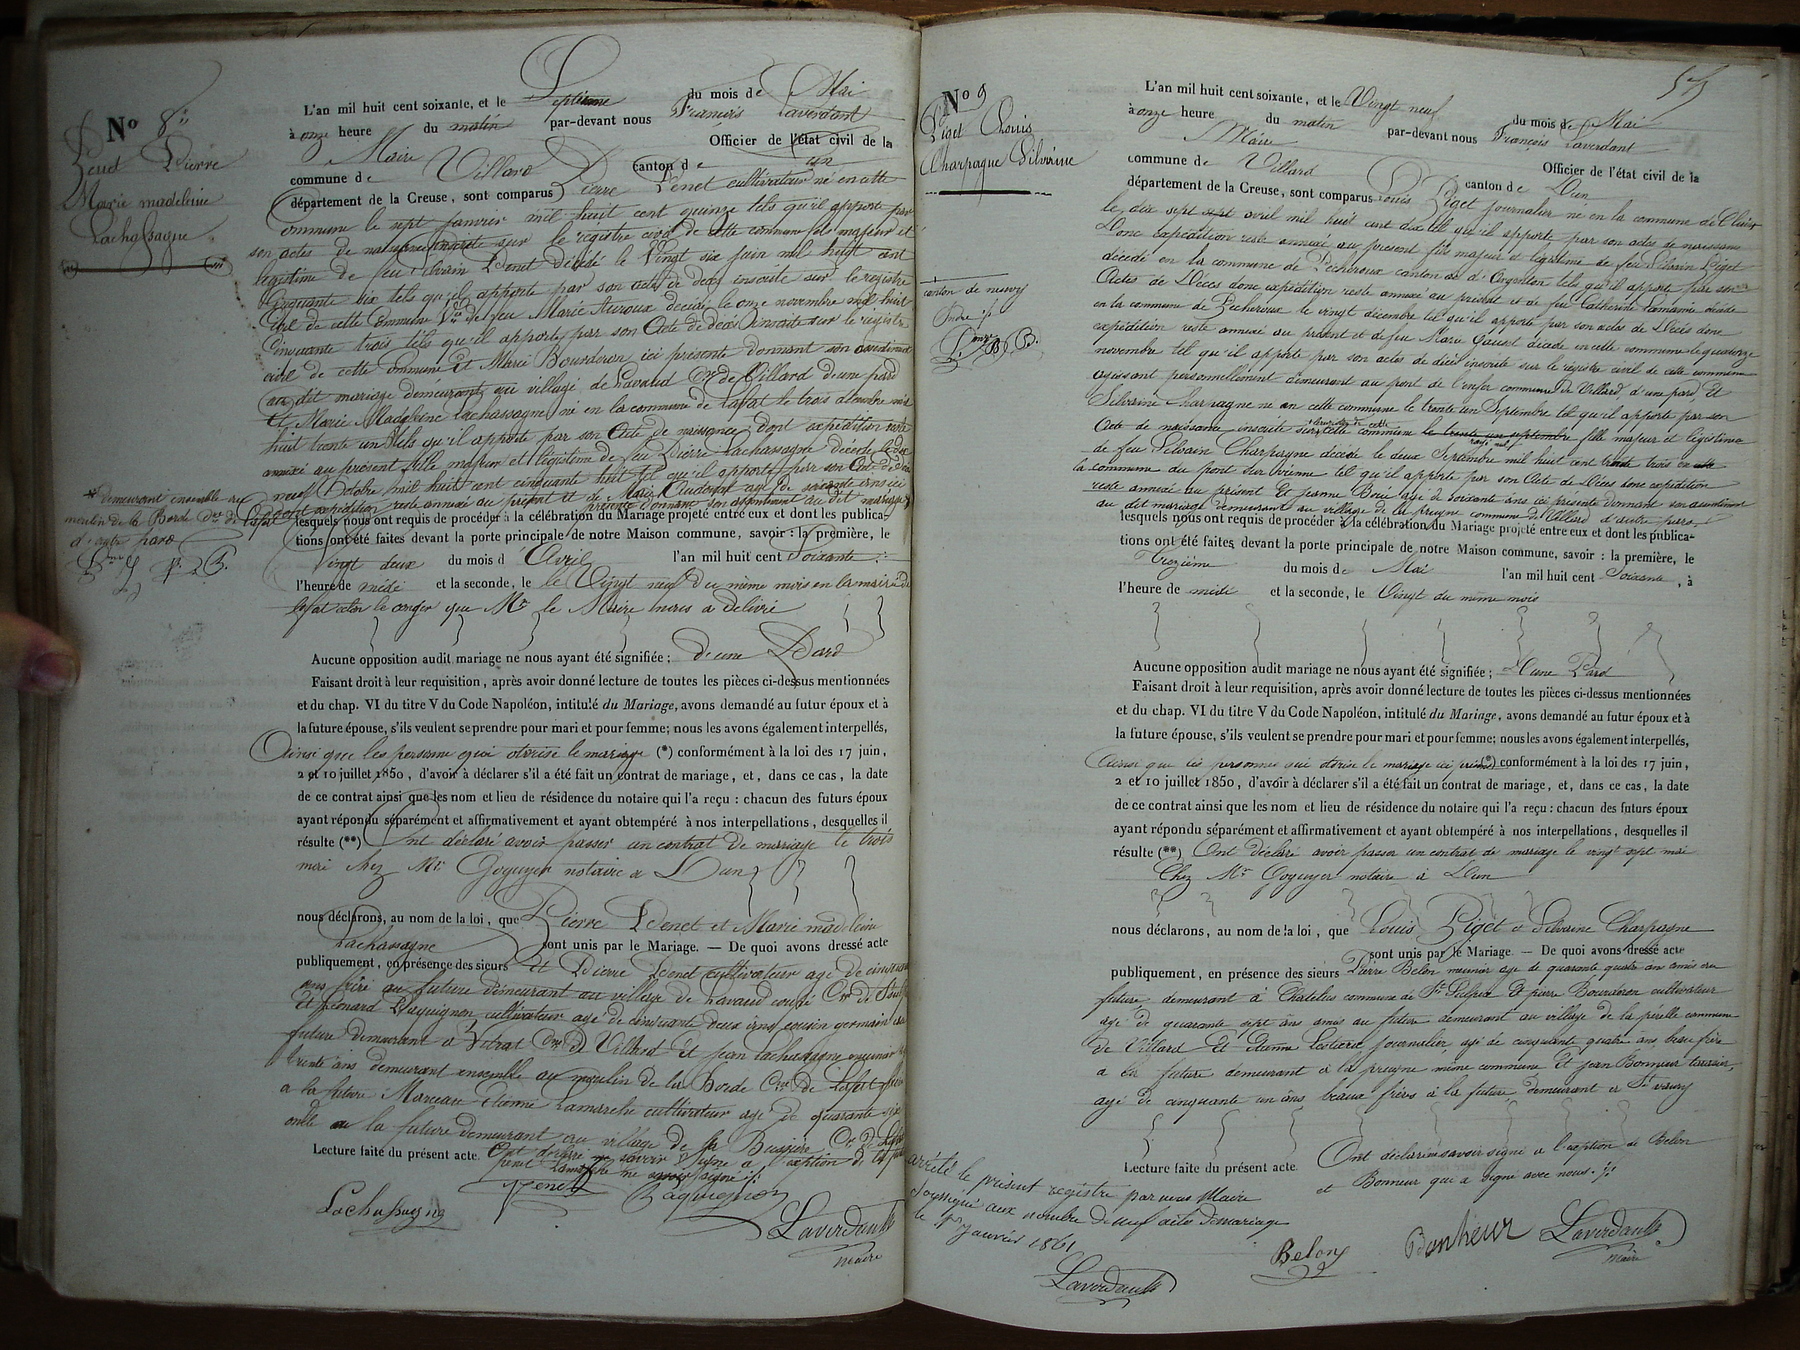 N° 8
Penet Pierre
Marie madeleine
Lachassagne
L'an mil huit cent soixante, et le Septieme du mois de Mai
à onze heure du matin par-devant nous François Laverdant
Maire Officier de l'état civil de la
commune de Villard canton de Dun
département de la Creuse, sont comparus Pierre Penet cultivateur né en cette
Commune le sept Janvier mil huit cent quinze tels qu'il apporte par
son actes de naissance inscrite sur le registre civil de cette commune fils majeur et
legitime de feu Silvain Penet décédé le Vingt six Juin mil huit cent
Cinquante six tels qu'il apporte par son acte de décès inscrite sur le registre
Civil de cette Commune de feu Marie Auroux décédé le onze novembre mil huit
Cinquante trois tels qu'il apporte par son Acte de décès inscrite sur le registre
civil de cette Commune Et Marie Bourderon ici présente donnant son
au dit mariage demeurant qui village de Lavaud Cne de Villard d'une pard
Et Marie Madeleine Lachassagne né en la commune de Lafat le trois
huit trente un tels qu'il apporte par son Acte de naissance dont expédition reste
annexé au présent fille majeur et légitime de feu Pierre Lachassagne décédé le dix
neuf Octobre mil huit cent cinquante huit tel qu'il apporte par son Acte de décès
dont expédition reste annexé au présent et de Marie agé de soixante ans ici
présente donnant son assentiment au dit mariage
demeurant ensemble au
moulin de la Borde Cne de Lafat
d'autre pard
lesquels nous ont requis de procéder à la célébration du Mariage projeté entre eux et dont les publica-
tions ont été faites devant la porte principale de notre Maison commune, savoir : la première, le
Vingt deux du mois d'Avril l'an mil huit cent Soixante
l'heure de midi et la seconde, le le Vingt neuf du même mois en la mairie de
Lafat selon le que Mr le Maire nous a délivré
Aucune opposition audit mariage ne nous ayant été signifiée ; d'une Pard
Faisant droit à leur requisition, après avoir donné lecture de toutes les pièces ci-dessus mentionnées
et du chap. VI du titre V du Code Napoléon, intitulé du Mariage, avons demandé au futur époux et à
la future épouse, s'ils veulent se prendre pour mari et pour femme; nous les avons également interpellés,
Ainsi que les persone qui otorise le mariage (*) conformément à la loi des 17 juin,
2 et 10 juillet 1850, d'avoir à déclarer s'il a été fait un contrat de mariage, et, dans ce cas, la date
de ce contrat ainsi que les nom et lieu de résidence du notaire qui l'a reçu : chacun des futurs époux
ayant répondu séparément et affirmativement et ayant obtempéré à nos interpellations, desquelles il
résulte (**) Ont déclaré avoir passer un contrat de mariage le trois
mai chez Mr Goguyer notaire a Dun
nous déclarons, au nom de la loi, que Pierre Penet et Marie madeleine
Lachassagne sont unis par le Mariage. — De quoi avons dressé acte
publiquement, en présence des sieurs Et Pierre Penet cultivateur agé de cinquante
ans frère au future demeurant au village de Lavaud
Et Léonard Paquignon cultivateur agé de cinquante deux ans cousin germain au
future demeurant à Vitrat Cne de Villard Et Jean Lachassagne meunier
trente ans demeurant ensemble au moulin de la Borde Cne de Lafat frère
a la future Marceau Etienne Lamarche cultivateur agé de quarante six
oncle a la future demeurant au village de la Bussière Cne de
Lecture faite du présent acte. Ont déclaré ne savoir signé a l'exeption de
Lachassagne
Penet
Paquignon
Laverdant
maire
57
N° 9
Piget Louis
Charpagne Silvaine
L'an mil huit cent soixante, et le Vingt neuf du mois de Mai
à onze heure du matin par-devant nous François Laverdant
Maire Officier de l'état civil de la
commune de Villard canton de Dun
département de la Creuse, sont comparus Louis Piget journalier né en la commune de Cluis
canton de neuvy
Indre
le dix sept sept avril mil huit cent dix tel qu'il apporte par son actes de naissance
Donc expédition reste annexé au présent fils majeur et légitime de feu Silvain Piget
décédé en la commune de Pécheroux canton d'Argenton tels qu'il apporte par son
Actes de Décès donc expédition reste annexé au présent et de feu Catherine Lamarine décédé
en la commune de Pécheroux le vingt décembre tel qu'il apporte par son actes de Décès donc
expédition reste annexé au présent et de feu Marie décédé en cette commune le quatorze
novembre tel qu'il apporte par son actes de décès inscrite sur le registre civil de cette commune
agissant personnellement demeurant au pont de l'enfer commune de Villard, d'une pard, Et
Silvaine Charpagne né en cette commune le trente un Septembre tel qu'il apporte par son
Acte de naissance inscrite sur cette commune le trente un septembre fille majeur et légitime
de feu Silvain Charpagne décédé le deux Septembre mil huit cent trente trois en
la commune du pont tel qu'il apporte par son Acte de Décès donc expédition
reste annexé au présent Et Jeanne agé de soixante ans ici présente donnant son assentiment
au dit mariage demeurant au village de la preugne commune de Villard d'autre pard
lesquels nous ont requis de procéder à la célébration du Mariage projeté entre eux et dont les publica-
tions ont été faites devant la porte principale de notre Maison commune, savoir : la première, le
Treizième du mois de Mai l'an mil huit cent Soixante, à
l'heure de midi et la seconde, le Vingt du même mois
Aucune opposition audit mariage ne nous ayant été signifiée ; D'une Pard
Faisant droit à leur requisition, après avoir donné lecture de toutes les pièces ci-dessus mentionnées
et du chap. VI du titre V du Code Napoléon, intitulé du Mariage, avons demandé au futur époux et à
la future épouse, s'ils veulent se prendre pour mari et pour femme; nous les avons également interpellés,
Ainsi que les personne qui otorise le mariage ici présent (*) conformément à la loi des 17 juin,
2 et 10 juillet 1850, d'avoir à déclarer s'il a été fait un contrat de mariage, et, dans ce cas, la date
de ce contrat ainsi que les nom et lieu de résidence du notaire qui l'a reçu : chacun des futurs époux
ayant répondu séparément et affirmativement et ayant obtempéré à nos interpellations, desquelles il
résulte (**) Ont déclaré avoir passer un contrat de mariage le vingt sept mai
Chez Mr Goguyer notaire à Dun
nous déclarons, au nom de la loi, que Louis Piget et Silvaine Charpagne
sont unis par le Mariage. — De quoi avons dressé acte
publiquement, en présence des sieurs Pierre Belon meunier agé de quarante quatre ans amis au
future demeurant à Chatelus commune de St Sulpice Et pierre Bourderon cultivateur
agé de quarante sept ans amis au future demeurant au village de la perelle commune
de Villard Et Etienne journalier agé de cinquante quatre ans, beau frère
a la future demeurant à la preugne même commune Et Jean Bonheur
agé de cinquante un ans beaux frères à la future demeurant à St vaury
Lecture faite du présent acte. Ont déclaré ne savoir signé a l'exeption de Belon
et Bonheur qui a signé avec nous
arrêté le présent registre par nous Maire
soussigné aux nombre de neuf actes de mariage
le 1er Janvier 1861
Laverdant
Belon
Bonheur
Laverdant
maire